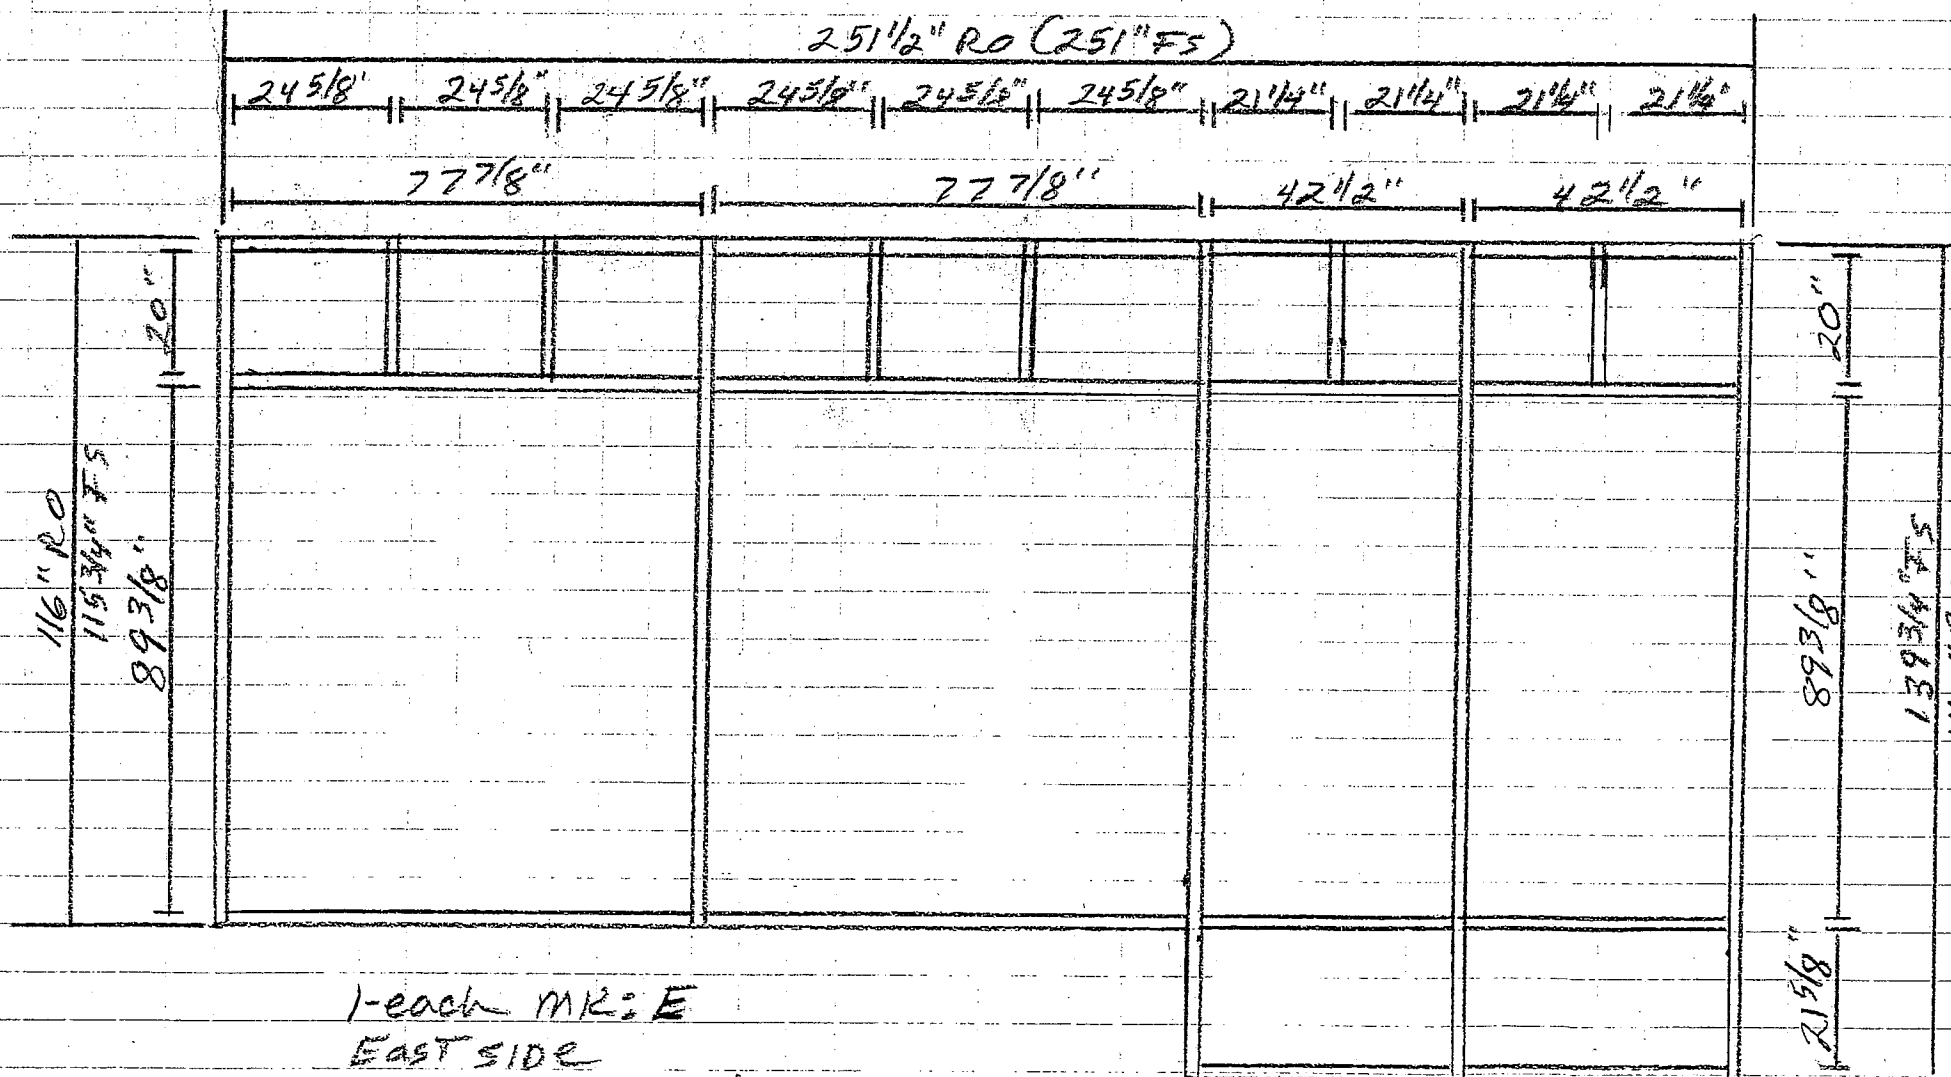 251 1/2" RO (251" FS)
24 5/8" 24 5/8" 24 5/8" 24 5/8" 24 5/8" 24 5/8" 21 1/4" 21 1/4" 21 1/4" 21 1/4"
77 7/8" 77 7/8" 42 1/2" 42 1/2"
20"
116" RO
115 3/4" FS
89 3/8"
20"
89 3/8"
139 3/4" FS
21 5/8"
1-each MK: E
EAST SIDE